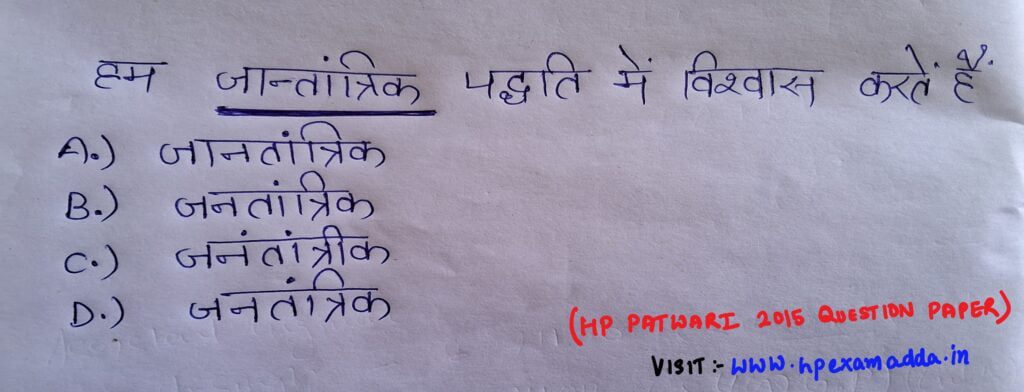 हम जान्तांत्रिक पद्धति में विश्वास करतें हैं.
A.) जानतांत्रिक
B.) जनतांत्रिक
C.) जनंतांत्रीक
D.) जनतांत्रिक
(HP PATWARI 2015 QUESTION PAPER)
VISIT :- www.hpexamadda.in